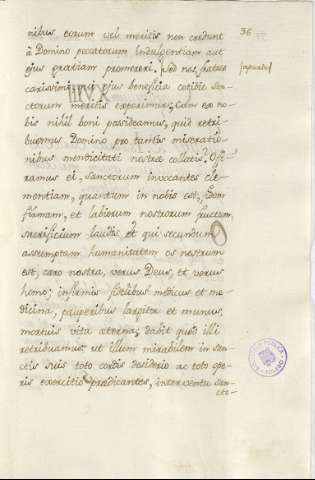 36
nibus eorum vel meritis non credunt
à Domino peccatorum indulgentiam aut
ejus gratiam promereri. Sed nos, fratres
carissimi, qui ejus beneficia cotidie San-
ctorum meritis experimur; Cum ex no-
bis nihil boni possideamus, quid retri-
buemus Domino pro tantis miseratio-
nibus mendicitati nostræ collatis? Offe-
ramus ei, sanctorum invocantes cle-
mentiam, quantum in nobis est,
et labiorum nostrorum fructum,
sacrificium laudis. Et qui secundum
assumptam humanitatem os nostrum
est, caro nostra, verus Deus, et verus
homo; infirmis fidelibus medicus et me-
dicina, pauperibus largitor et munus,
mortuis vita æterna; dabit quod illi
retribuamus; ut illum mirabilem in San-
ctis suis toto cordis desiderio ac toto ope-
ris exercitio prædicantes, interventu San-
cto-